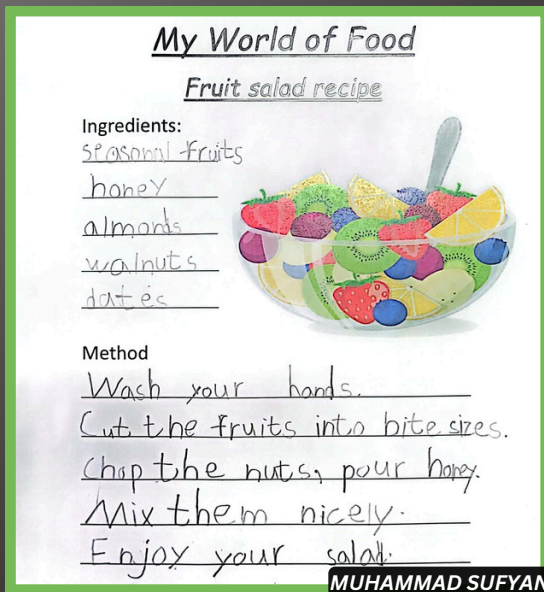 My World of Food
Fruit salad recipe
Ingredients:
seasonal fruits
honey
almonds
walnuts
dates
Method
Wash your hands.
Cut the fruits into bite sizes.
Chop the nuts, pour honey.
Mix them nicely.
Enjoy your salad.
MUHAMMAD SUFYAN